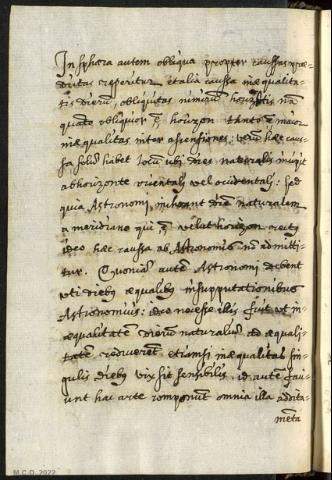 In sphæra autem obliqua propter caussas præ=
dictas reperitur et alia caussa inæqualita=
tis dierū, obliquitas nimirū horizontis nā
quāto obliquior ē horizon tanto ē maior
inæqualitas inter assensiones; verū hæc caus=
sa solū habet locū ubi dies naturalis incipit
ab horizonte orientali vel occidentali; sed
quia Astronomi inchoant diē naturalem
a meridiano qui ē velut horizon rectus
ideo hæc caussa ab Astronomis nō admitti=
tur. Quoniā autē Astronomi debent
uti diebus æqualibus in supputationibus
Astronomicis: ideo necesse illis fuit ut in=
æqualitatē dierū naturaliū ad æquali=
tatē reducerent etiamsi inæqualitas sin=
gulis diebus vix sit sensibilis, id autē faci=
unt hac arte componūt omnia illa addita=
menta
M.C.D. 2022